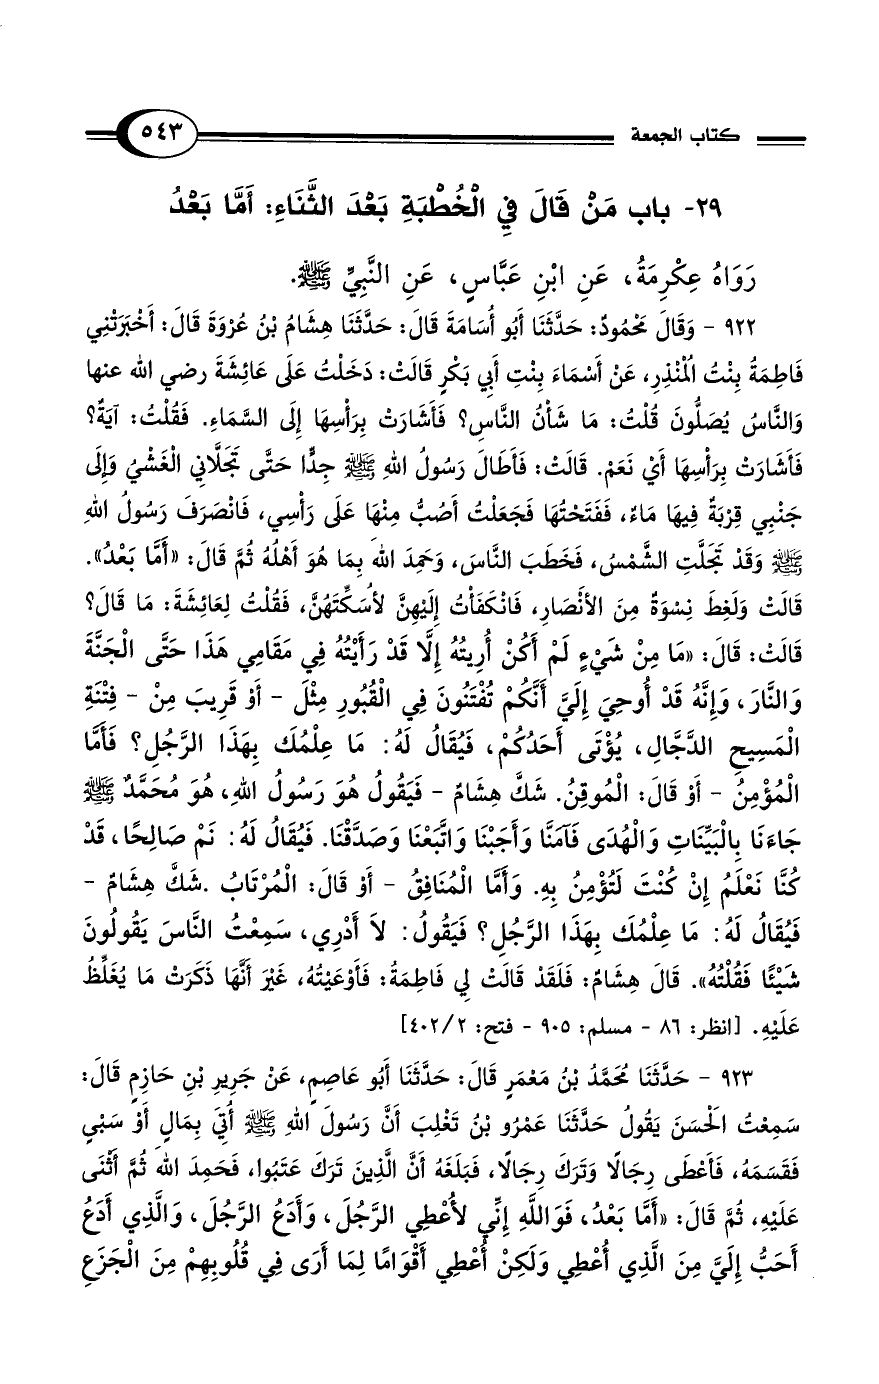 كتاب الجمعة ٥٤٣
٢٩- باب مَنْ قَالَ فِي الْخُطْبَةِ بَعْدَ الثَّنَاءِ: أَمَّا بَعْدُ
رَوَاهُ عِكْرِمَةُ، عَنِ ابْنِ عَبَّاسٍ، عَنِ النَّبِيِّ ﷺ.
٩٢٢ - وَقَالَ مَحْمُودٌ: حَدَّثَنَا أَبُو أُسَامَةَ قَالَ: حَدَّثَنَا هِشَامُ بْنُ عُرْوَةَ قَالَ: أَخْبَرَتْنِي
فَاطِمَةُ بِنْتُ الْمُنْذِرِ، عَنْ أَسْمَاءَ بِنْتِ أَبِي بَكْرٍ قَالَتْ: دَخَلْتُ عَلَى عَائِشَةَ رضي الله عنها
وَالنَّاسُ يُصَلُّونَ قُلْتُ: مَا شَأْنُ النَّاسِ؟ فَأَشَارَتْ بِرَأْسِهَا إِلَى السَّمَاءِ. فَقُلْتُ: آيَةٌ؟
فَأَشَارَتْ بِرَأْسِهَا أَيْ نَعَمْ. قَالَتْ: فَأَطَالَ رَسُولُ اللهِ ﷺ جِدًّا حَتَّى تَجَلَّانِي الْغَشْيُ وَإِلَى
جَنْبِي قِرْبَةٌ فِيهَا مَاءٌ، فَفَتَحْتُهَا فَجَعَلْتُ أَصُبُّ مِنْهَا عَلَى رَأْسِي، فَانْصَرَفَ رَسُولُ اللهِ
ﷺ وَقَدْ تَجَلَّتِ الشَّمْسُ، فَخَطَبَ النَّاسَ، وَحَمِدَ اللهَ بِمَا هُوَ أَهْلُهُ ثُمَّ قَالَ: «أَمَّا بَعْدُ».
قَالَتْ وَلَغِطَ نِسْوَةٌ مِنَ الأَنْصَارِ، فَانْكَفَأْتُ إِلَيْهِنَّ لأُسَكِّتَهُنَّ، فَقُلْتُ لِعَائِشَةَ: مَا قَالَ؟
قَالَتْ: قَالَ: «مَا مِنْ شَيْءٍ لَمْ أَكُنْ أُرِيتُهُ إِلَّا قَدْ رَأَيْتُهُ فِي مَقَامِي هَذَا حَتَّى الْجَنَّةَ
وَالنَّارَ، وَإِنَّهُ قَدْ أُوحِيَ إِلَيَّ أَنَّكُمْ تُفْتَنُونَ فِي الْقُبُورِ مِثْلَ - أَوْ قَرِيبَ مِنْ - فِتْنَةِ
الْمَسِيحِ الدَّجَّالِ، يُؤْتَى أَحَدُكُمْ، فَيُقَالُ لَهُ: مَا عِلْمُكَ بِهَذَا الرَّجُلِ؟ فَأَمَّا
الْمُؤْمِنُ - أَوْ قَالَ: الْمُوقِنُ. شَكَّ هِشَامٌ - فَيَقُولُ هُوَ رَسُولُ اللهِ، هُوَ مُحَمَّدٌ ﷺ
جَاءَنَا بِالْبَيِّنَاتِ وَالْهُدَى فَآمَنَّا وَأَجَبْنَا وَاتَّبَعْنَا وَصَدَّقْنَا. فَيُقَالُ لَهُ: نَمْ صَالِحًا، قَدْ
كُنَّا نَعْلَمُ إِنْ كُنْتَ لَتُؤْمِنُ بِهِ. وَأَمَّا الْمُنَافِقُ - أَوْ قَالَ: الْمُرْتَابُ .شَكَّ هِشَامٌ -
فَيُقَالُ لَهُ: مَا عِلْمُكَ بِهَذَا الرَّجُلِ؟ فَيَقُولُ: لاَ أَدْرِي، سَمِعْتُ النَّاسَ يَقُولُونَ
شَيْئًا فَقُلْتُهُ». قَالَ هِشَامٌ: فَلَقَدْ قَالَتْ لِي فَاطِمَةُ: فَأَوْعَيْتُهُ، غَيْرَ أَنَّهَا ذَكَرَتْ مَا يُغَلِّظُ
عَلَيْهِ. [انظر: ٨٦ - مسلم: ٩٠٥ - فتح: ٤٠٢/٢]
٩٢٣ - حَدَّثَنَا مُحَمَّدُ بْنُ مَعْمَرٍ قَالَ: حَدَّثَنَا أَبُو عَاصِمٍ، عَنْ جَرِيرِ بْنِ حَازِمٍ قَالَ:
سَمِعْتُ الْحَسَنَ يَقُولُ حَدَّثَنَا عَمْرُو بْنُ تَغْلِبَ أَنَّ رَسُولَ اللهِ ﷺ أُتِيَ بِمَالٍ أَوْ سَبْيٍ
فَقَسَمَهُ، فَأَعْطَى رِجَالًا وَتَرَكَ رِجَالًا، فَبَلَغَهُ أَنَّ الَّذِينَ تَرَكَ عَتَبُوا، فَحَمِدَ اللهَ ثُمَّ أَثْنَى
عَلَيْهِ، ثُمَّ قَالَ: «أَمَّا بَعْدُ، فَوَاللَّهِ إِنِّي لأُعْطِي الرَّجُلَ، وَأَدَعُ الرَّجُلَ، وَالَّذِي أَدَعُ
أَحَبُّ إِلَيَّ مِنَ الَّذِي أُعْطِي وَلَكِنْ أُعْطِي أَقْوَامًا لِمَا أَرَى فِي قُلُوبِهِمْ مِنَ الْجَزَعِ